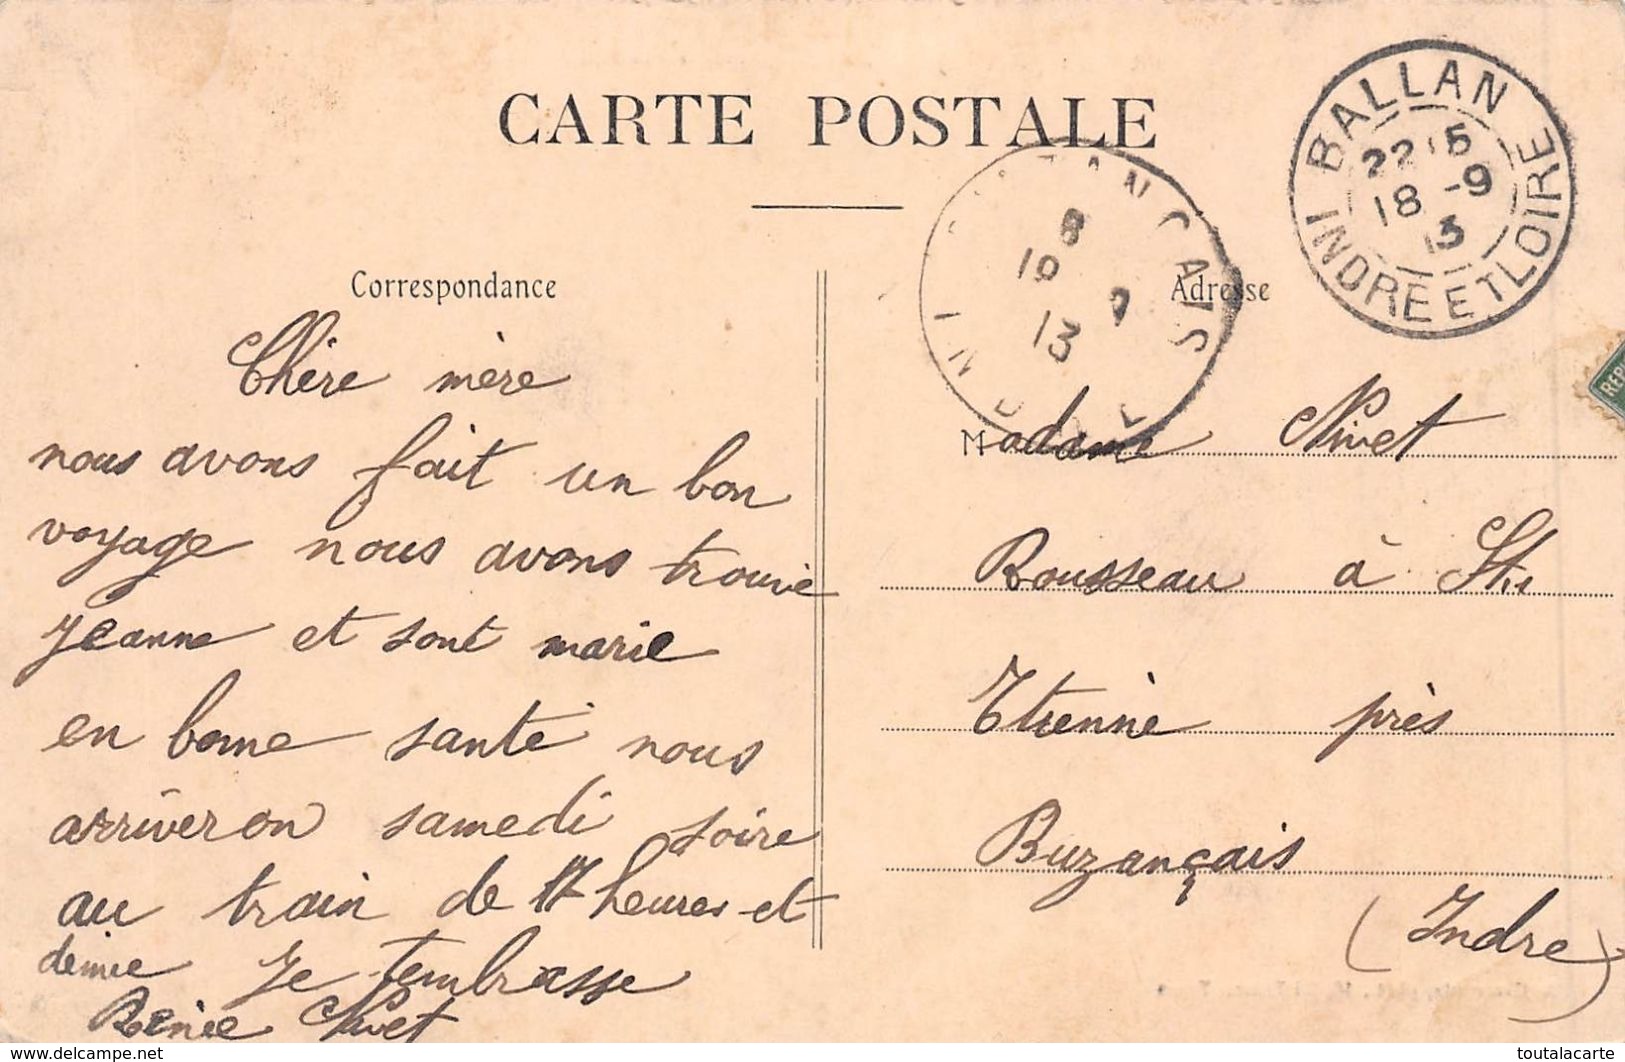 CARTE POSTALE
BALLAN
22 15
18 -9
13
INDRE ET LOIRE
ANÇAIS
8
19 9
13
IND
Correspondance
Adresse
REP
Chère mère
nous avons fait un bon
voyage nous avons trouvé
Jeanne et sont marie
en bonne santé nous
arriveron samedi soire
au train de 17 heures et
demie Je tembrasse
Renée Nivet
Madame Nivet
Rousseau à St
Etienne près
Buzançais
(Indre)
www.delcampe.net
toutalacarte